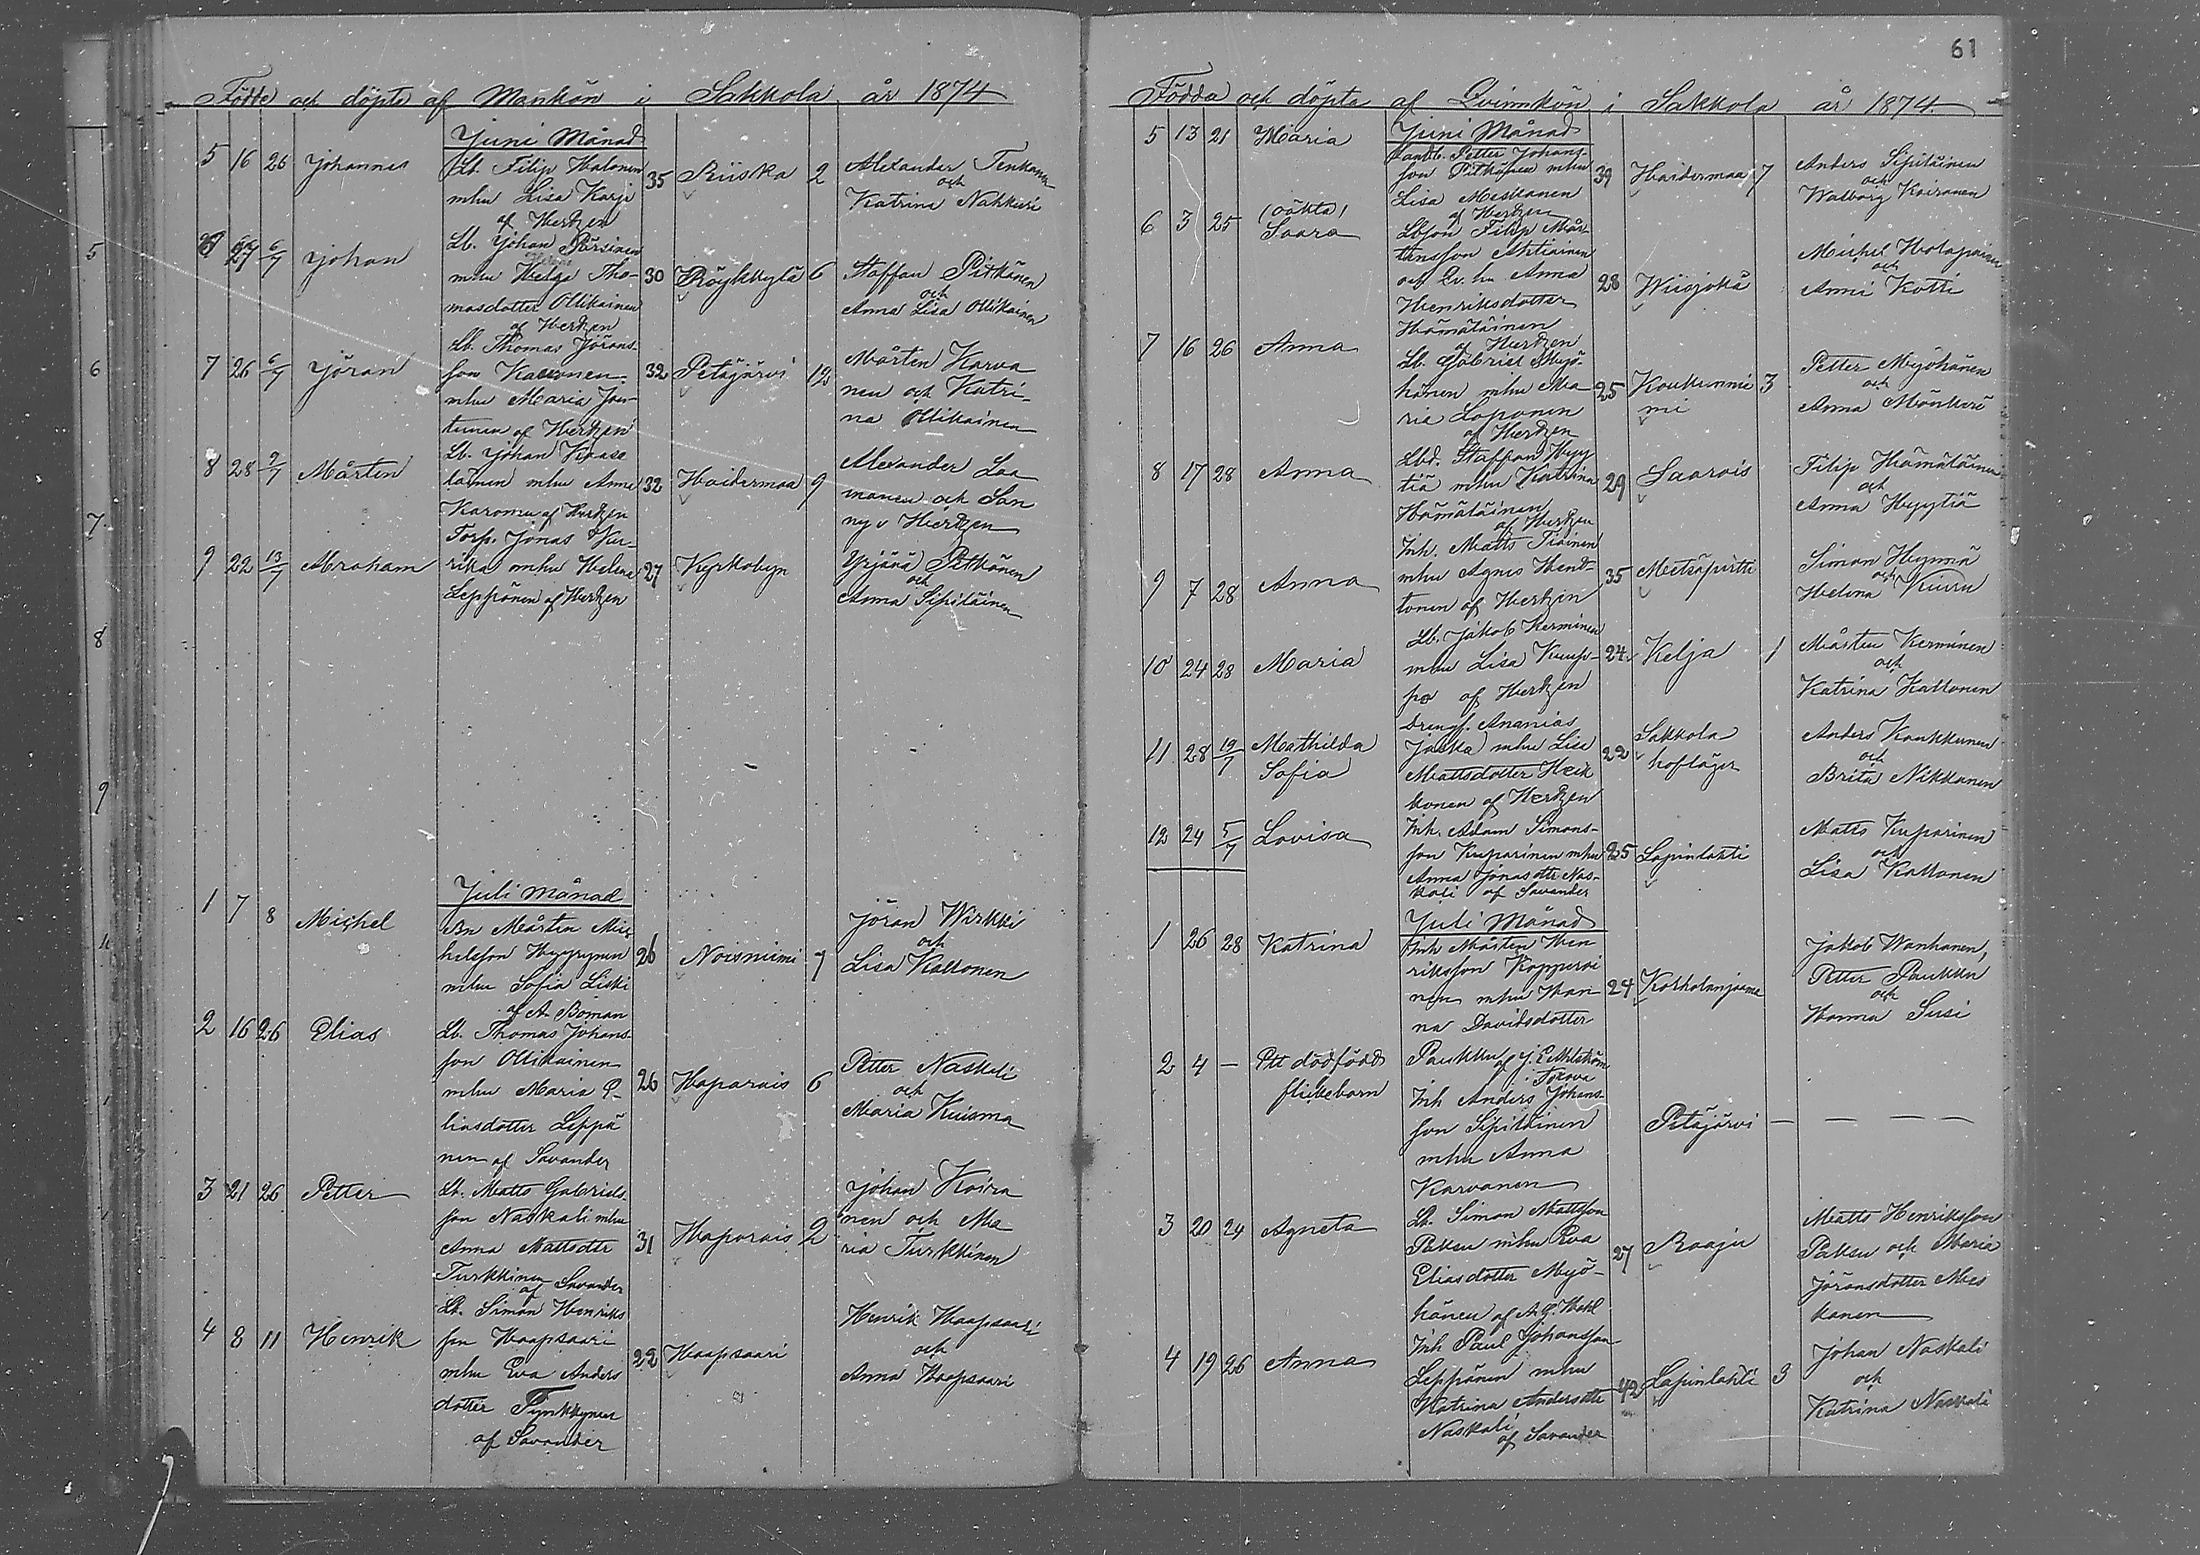 Födde och döpte af Mankön i Sakkola år 1874
Juni Månad
5 16 26 Johannes
Lb. Filip Halonen
mhu Lisa Karja
af Hertzen
35 Riiska 2
Alexander Tenkanen
och
Katrina Nahkuri
6 27 6/7 Johan
Lb. Johan Pärsinen
mhu Helga Tho-
masdotter Ollikainen
af Hertzen
30 Röykkylä 6
Staffan Pitkänen
och
Anna Lisa Ollikainen
7 26 6/7 Jöran
Lb. Thomas Jörans-
son
mhu Maria Jun-
tunen af Hertzen
32 Petäjärvi 12
Mårten Karva
nen och Katri-
na Ollikainen
8 28 9/7 Mårten
Lb. Johan Kaase
lainen mhu Anna
Karonen af Hertzen
32 Haidermaa 9
Alexander Laa
manen och San
ny v Hertzen
9 22 13/7 Abraham
Torp. Jonas Ku-
rika mhu Helena
Leppänen af Hertzen
27 Kyrkobyn
Yrjänä Pitkänen
och
Anna Sipiläinen
Juli Månad
1 7 8 Michel
Bn Mårten Mic
helsson Hyyrynen
mhu Sofia Liski
af A Boman
26 Noisniemi 7
Jöran Wirkki
och
Lisa Kaltonen
2 16 26 Elias
Lb. Thomas Johans-
son Ollikainen
mhu Maria E-
liasdotter Leppä
nen af Savander
26 Haparais 6
Petter Naskali
och
Maria Kuisma
3 21 26 Petter
Lb. Matts Gabriels-
son Naskali mhu
Anna Mattsdtr
Turkkinen
af Savander
31 Haparais 2
Johan Koira
nen och Ma
ria Turkkinen
4 8 11 Henrik
Lb. Simon Henriks
son Haapsaari
mhu Eva Anders
dotter Tynkkynen
af Savander
22 Haapsaari
Henrik Haapsaari
och
Anna Haapsaari
61
Födda och döpta af Qvinnkön i Sakkola år 1874
Juni Månad
5 13 21 Maria
Landb. Petter Johans-
son Pitkänen mhu
Lisa Meskanen
af Hertzen
39 Haidermaa 7
Anders Sipiläinen
och
Walborg Koiranen
6 3 25 (oäkta)
Saara
Lbson Filip Mår-
tensson Ahtiainen
och Qv. hu Anna
Henriksdotter
Hämäläinen
af Hertzen
28 Wiisjoki
Michel Holopainen
och
Anni Kotti
7 16 26 Anna
Lb. Gabriel Myö-
hänen mhu Ma-
ria Loponen
af Hertzen
25 Koukunnie
mi 3
Petter Myöhänen
och
Anna Mönkäri
8 17 28 Anna
Lbd. Staffan Hyy
tiä mhu Katrina
Hämäläinen
af Hertzen
29 Saarois
Filip Hämäläinen
och
Anna Hyytiä
9 7 28 Anna
Inh. Matts Tiainen
mhu Agnes Hent-
tonen af Hertzen
35 Metsäpirtti
Simon Hynnä
och
Helena Kiuru
10 24 28 Maria
Lb. Jakob Kerminen
mhu Lisa Kump-
pa af Hertzen
24 Kelja 1
Mårten Kerminen
och
Katrina Kaltonen
11 28 12/7 Mathilda
Sofia
Dreng. Ananias
Jaska mhu Lisa
Mattsdotter Heik
konen af Hertzen
22 Sakkola
hofläger
Anders Kaukkunen
och
Brita Nikkanen
12 24 5/7 Lovisa
Inh. Adam Simons-
son Kuparinen mhu
Anna Jonasdtr Nas-
kali af Savander
25 Lapinlahti
Matts Kuparinen
och
Lisa Kaltonen
Juli Månad
1 26 28 Katrina
Inh Mårten Hen
riksson Kopperoi
nen mhu Han
na Davidsdotter
Paukku af J. E. Ahlström
24 Korholanjaama
Jakob Wanhanen,
Petter Paukku
och
Hanna Susi
2 4 — Ett dödfödd
flickebarn
Inh Anders Johans-
son Sipiläinen
mhu Anna
Karvanen
Petäjärvi — — — —
3 20 24 Agneta
Lb. Simon Mattsson
Paksu mhu Eva
Eliasdotter Myö-
hänen af A. G. Hahl
27 Raaju
Matts Henriksson
Paksu och Maria
Jöransdotter Mes
kanen
4 19 26 Anna
Inh Paul Johansson
Leppänen mhu
Katrina Andersdtr
Naskali
af Savander
42 Lapinlahti 3
Johan Naskali
och
Katrina Naskali
5
6
7
8
9